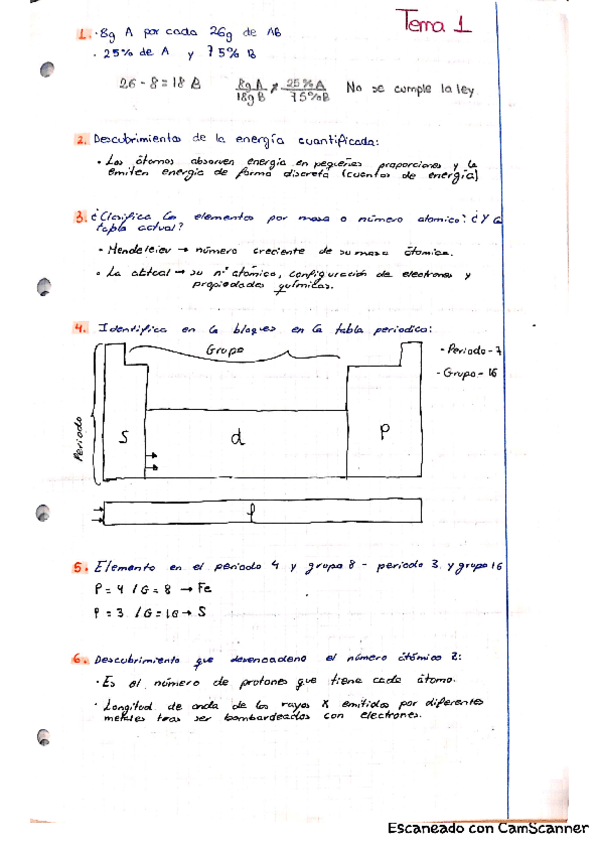 Tema 1
1. · 8g A por cada 26g de AB
· 25% de A y 75% B
26 - 8 = 18 B   8g A / 18g B ≠ 25% A / 75% B   No se cumple la ley
2. Descubrimientos de la energía cuantificada:
· Los átomos absorven energía en pequeñas proporciones y la
emiten energia de forma discreta (cuantos de energía)
3. ¿Clasifica los elementos por masa o número atomico? ¿Y la
tabla actual?
· Mendeleiev → número creciente de su masa átomica.
· La → su nº atómico, configuración de electrones y
propiedades químicas.
4. Identifica en la bloques en la tabla periodica:
Grupo
· Periodo - 7
· Grupo - 16
Periodo
s
d
p
f
5. Elemento en el periodo 4 y grupo 8 - periodo 3 y grupo 16
P = 4 / G = 8 → Fe
P = 3 / G = 16 → S
6. Descubrimiento que desencadeno el número átómico Z:
· Es el número de protones que tiene cada átomo.
· Longitud de onda de los rayos X emitidos por diferentes
metales tras ser bombardeados con electrones.
Escaneado con CamScanner